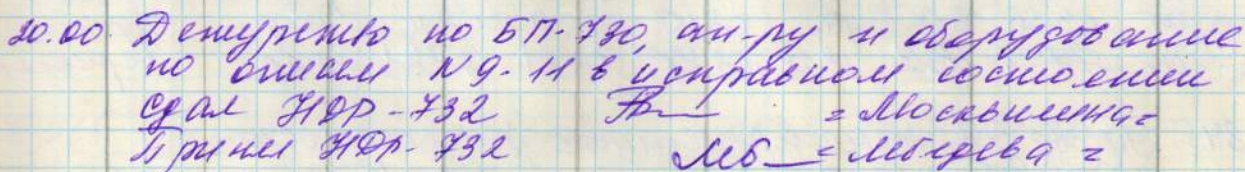 20.00 Дежурство по БП-730, ап-ру и оборудование
по описи №9-11 в исправном состоянии
сдал НДР-732 = Москвитина =
Принял НДР-732 = Лебедева =